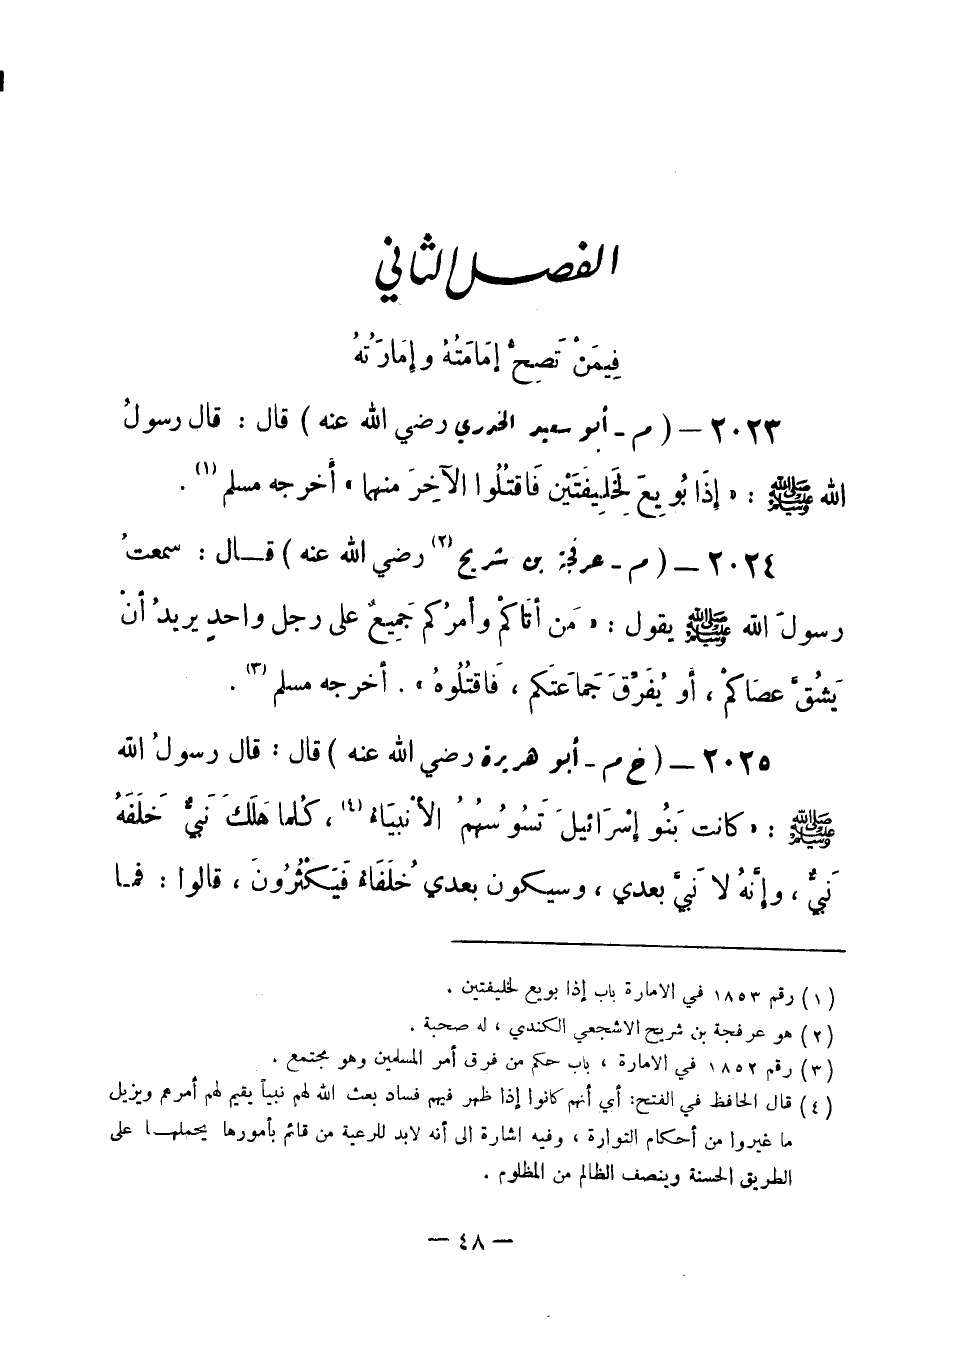 الفصل الثاني
فِيمَنْ تَصِحُّ إمَامَتُهُ وإمَارَتُهُ
٢٠٢٣ – ( م ـ أبو سعيد الخدري رضي الله عنه ) قال : قال رسولُ
الله ﷺ : « إِذَا بُويِعَ لِخَلِيفَتَيْنِ فَاقتُلُوا الآخِرَ منهما » أخرجه مسلم (١) .
٢٠٢٤ – ( م ـ عرفجة بن شريح (٢) رضي الله عنه ) قـــال : سمعتُ
رسولَ الله ﷺ يقول : « مَن أتَاكُمْ وأمرُكم جَمِيعٌ على رجل واحدٍ يريدُ أنْ
يَشُقَّ عصَاكمْ ، أو يُفَرِّقَ جَمَاعَتَكم ، فَاقتُلُوهُ » . أخرجه مسلم (٣) .
٢٠٢٥ – ( خ م ـ أبو هريرة رضي الله عنه ) قال : قال رسولُ الله
ﷺ : « كانت بَنُو إسْرَائيلَ تَسُوسُهُمُ الأنْبِيَاءُ (٤) ، كُلما هَلَكَ نَبيٌّ خَلَفَهُ
نَبيٌّ ، وإنَّهُ لا نَبيَّ بعدي ، وسيكون بعدي خُلَفَاءُ فَيَكْثُرُونَ ، قالوا : فمـا
(١) رقم ١٨٥٣ في الامارة باب إذا بويع لخليفتين .
(٢) هو عرفجة بن شريح الاشجعي الكندي ، له صحبة .
(٣) رقم ١٨٥٢ في الامارة ، باب حكم من فرق أمر المسلمين وهو مجتمع .
(٤) قال الحافظ في الفتح: أي أنهم كانوا إذا ظهر فيهم فساد بعث الله لهم نبياً يقيم لهم أمرهم ويزيل
ما غيروا من أحكام التوارة ، وفيه اشارة الى أنه لابد للرعية من قائم بأمورها يحملهـــا على
الطريق الحسنة وينصف الظالم من المظلوم .
– ٤٨ –